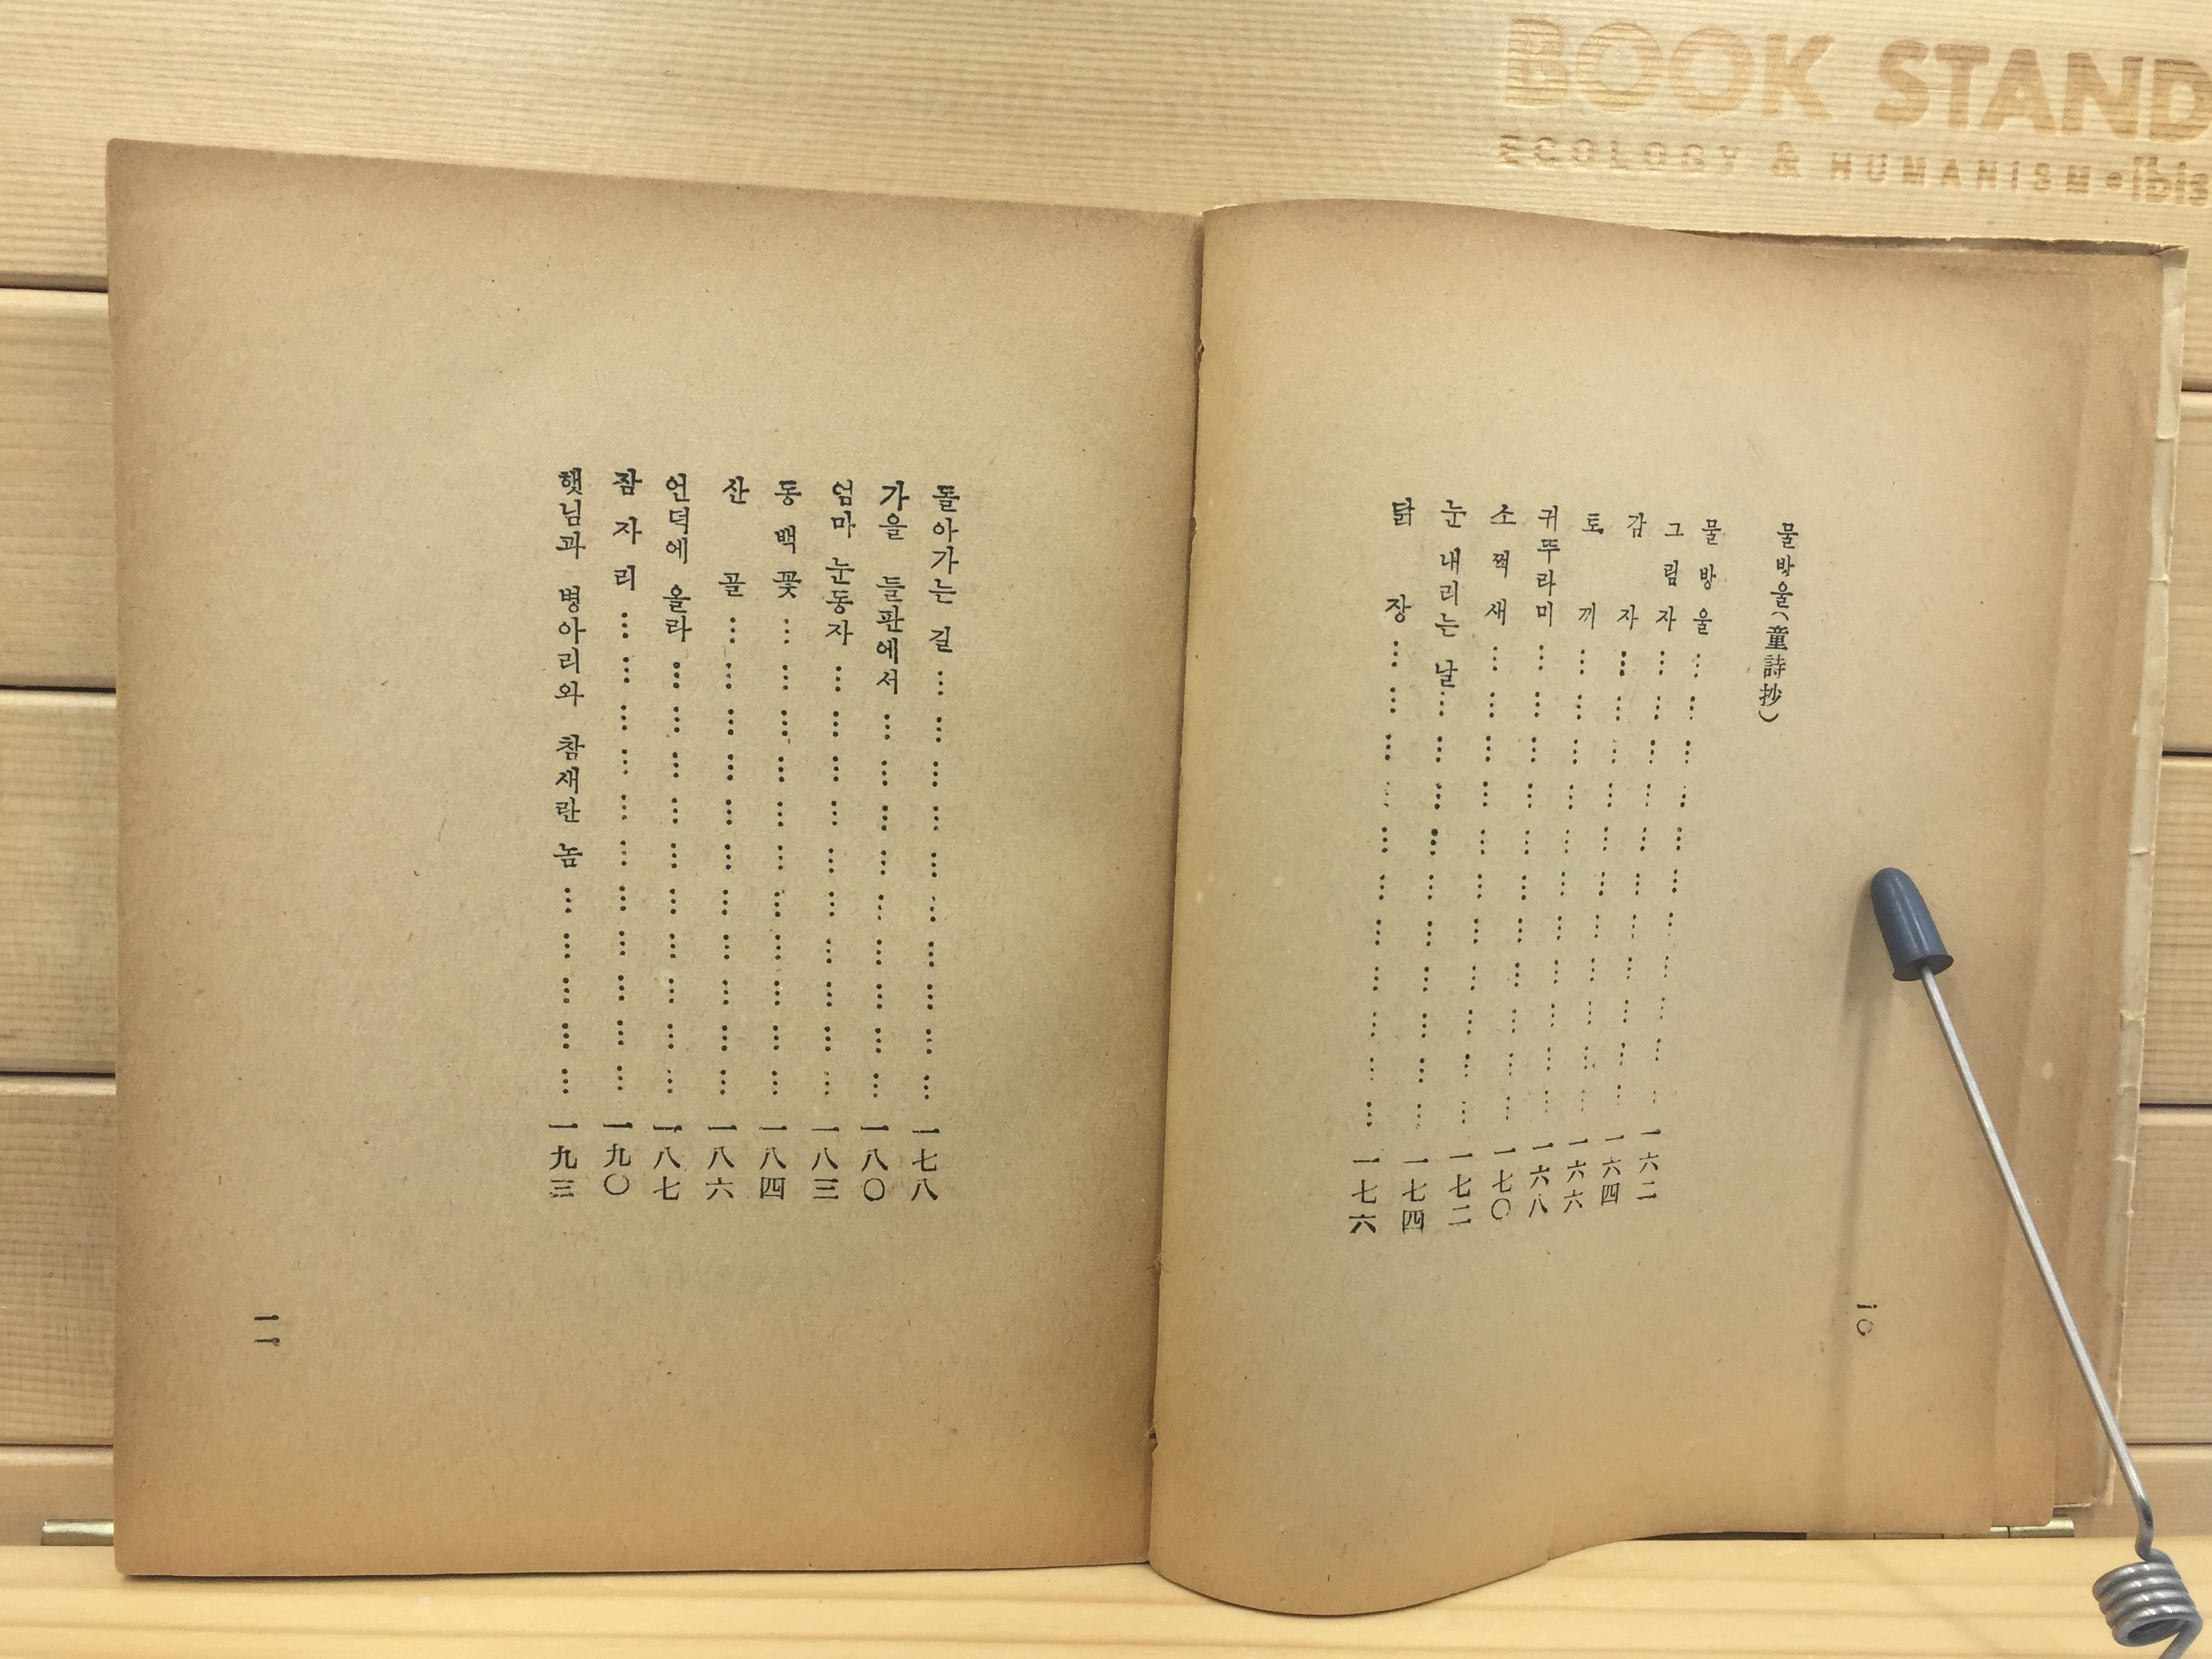 BOOK STAND
ECOLOGY & HUMANISM • ibis
물방울(童詩抄)
물방울 …………………………… 一六二
그림자 …………………………… 一六四
감자 …………………………… 一六六
토끼 …………………………… 一六八
귀뚜라미 …………………………… 一七〇
소쩍새 …………………………… 一七二
눈 내리는 날 …………………………… 一七四
닭장 …………………………… 一七六
一〇
돌아가는 길 …………………………… 一七八
가을 들판에서 …………………………… 一八〇
엄마 눈동자 …………………………… 一八三
동백꽃 …………………………… 一八四
산골 …………………………… 一八六
언덕에 올라 …………………………… 一八七
잠자리 …………………………… 一九〇
햇님과 병아리와 참새란 놈 ……………… 一九三
一一